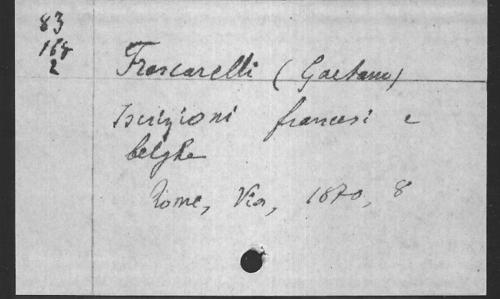 83
168
2
Frascarelli (Gaetano)
Iscrizioni francesi e
belghe
Rome, Via, 1870, 8